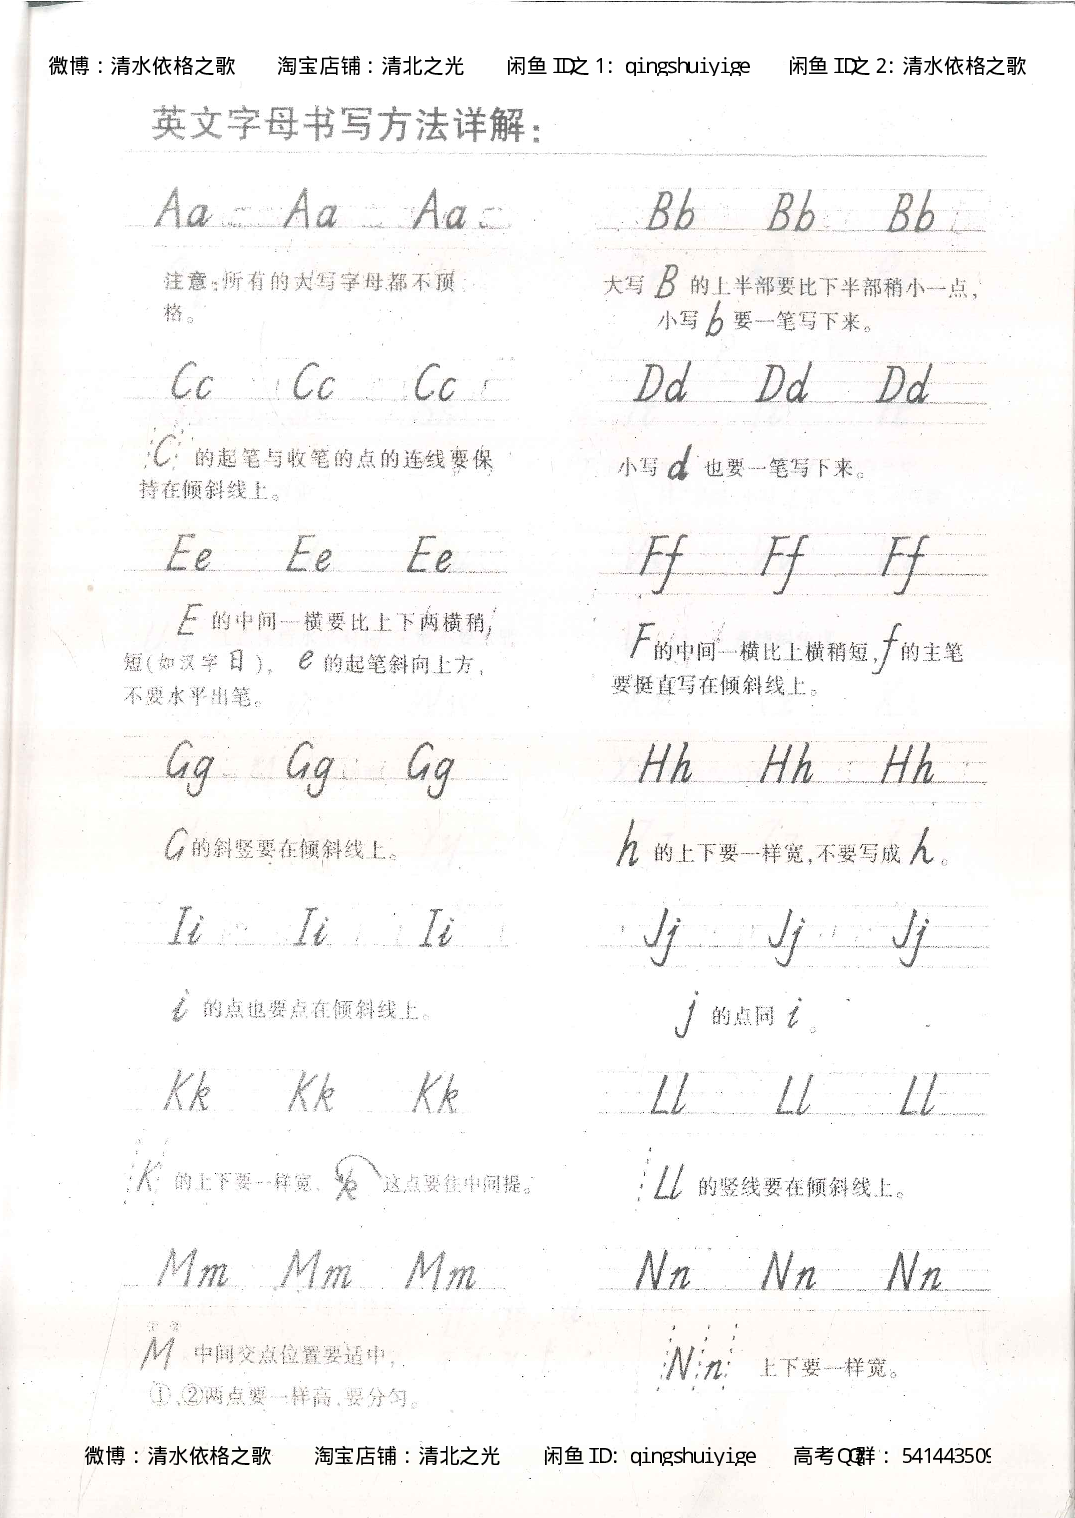 微博：清水依格之歌 淘宝店铺：清北之光 闲鱼 ID之 1: qingshuiyige 闲鱼 ID之 2: 清水依格之歌
英文字母书写方法详解：
Aa Aa Aa
Bb Bb Bb
注意：所有的大写字母都不顶
格。
大写 B 的上半部要比下半部稍小一点，
小写 b 要一笔写下来。
Cc Cc Cc
Dd Dd Dd
C 的起笔与收笔的点的连线要保
持在倾斜线上。
小写 d 也要一笔写下来。
Ee Ee Ee
Ff Ff Ff
E 的中间一横要比上下两横稍
短(如汉字日)， e 的起笔斜向上方，
不要水平出笔。
F 的中间一横比上横稍短，f 的主笔
要挺直写在倾斜线上。
Gg Gg Gg
Hh Hh Hh
G 的斜竖要在倾斜线上。
h 的上下要一样宽，不要写成 h 。
Ii Ii Ii
Jj Jj Jj
i 的点也要点在倾斜线上。
j 的点同 i 。
Kk Kk Kk
Ll Ll Ll
K 的上下要一样宽、 k 这点要往中间提。
Ll 的竖线要在倾斜线上。
Mm Mm Mm
Nn Nn Nn
M 中间交点位置要适中，
①、②两点要一样高，要分匀。
Nn 上下要一样宽。
微博：清水依格之歌 淘宝店铺：清北之光 闲鱼 ID: qingshuiyige 高考QQ群： 541443509